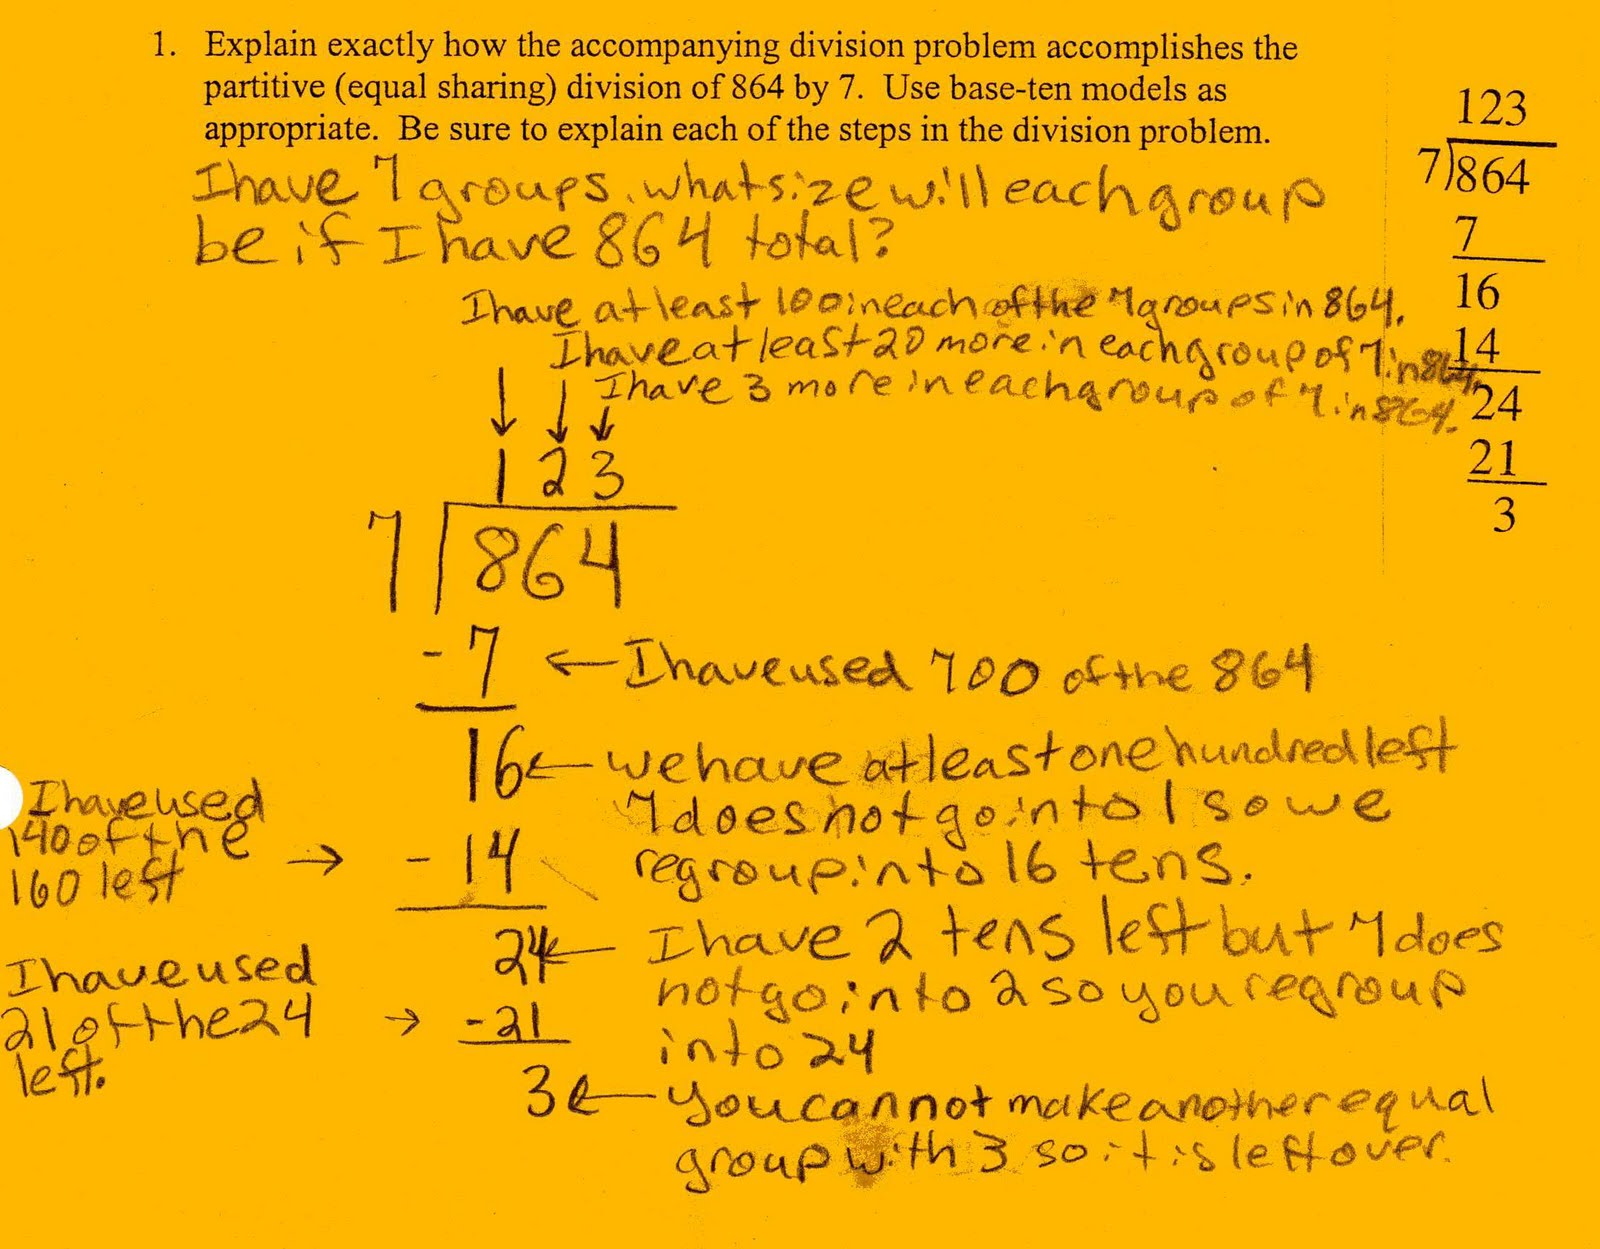 1. Explain exactly how the accompanying division problem accomplishes the
partitive (equal sharing) division of 864 by 7. Use base-ten models as
appropriate. Be sure to explain each of the steps in the division problem.
123
7)864
7
16
14
24
21
3
I have 7 groups. what size will each group
be if I have 864 total?
I have at least 100 in each of the 7 groups in 864.
I have at least 20 more in each group of 7 in 864.
I have 3 more in each group of 7 in 864.
123
7)864
-7 ← I have used 700 of the 864
16 ← we have at least one hundred left
7 does not go into 1 so we
regroup into 16 tens.
I have used
140 of the
160 left → -14
24 ← I have 2 tens left but 7 does
not go into 2 so you regroup
into 24
I have used
21 of the 24
left. → -21
3 ← you can not make another equal
group with 3 so it is left over.